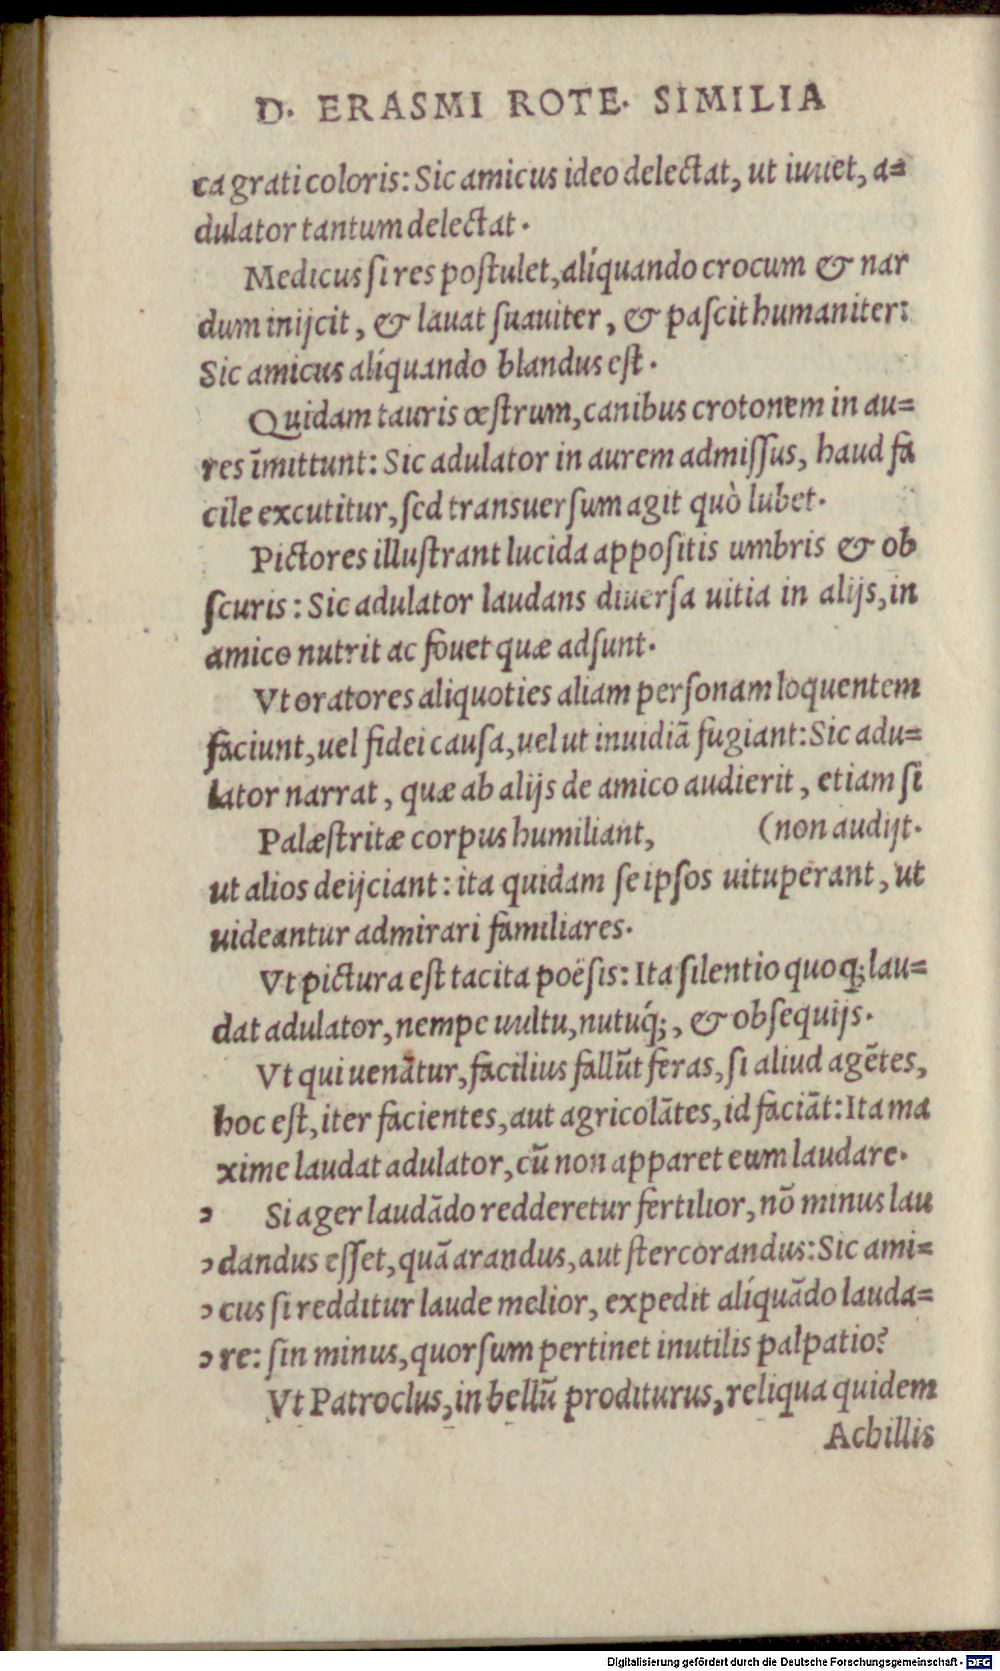 D. ERASMI ROTE. SIMILIA
ca grati coloris: Sic amicus ideo delectat, ut iuuet, a=
dulator tantum delectat.
Medicus ſi res poſtulet, alíquando crocum & nar
dum inijcit, & lauat ſuauiter, & paſcit humaniter:
Sic amicus alíquando blandus eſt.
Quidam tauris œſtrum, canibus crotonem in au=
res īmittunt: Sic adulator in aurem admiſſus, haud fa
cile excutitur, ſed transuerſum agit quò lubet.
Pictores illuſtrant lucida appoſitis umbris & ob
ſcuris: Sic adulator laudans diuerſa uitia in alijs, in
amico nutrit ac fouet quæ adſunt.
Vt oratores aliquoties aliam perſonam loquentem
faciunt, uel fidei cauſa, uel ut inuidiā fugiant: Sic adu=
lator narrat, quæ ab alijs de amico audierit, etiam ſi
Palæſtritæ corpus humiliant, (non audijt.
ut alios deijciant: ita quidam ſeipſos uituperant, ut
uideantur admirari familiares.
Vt pictura eſt tacita poëſis: Ita ſilentio quoq; lau=
dat adulator, nempe uultu, nutuq́;, & obſequijs.
Vt qui uenātur, facilius fallūt feras, ſi aliud agētes,
hoc eſt, iter facientes, aut agricolātes, id faciāt: Ita ma
xime laudat adulator, cū non apparet eum laudare.
ɔ Si ager laudādo redderetur fertilior, nō minus lau
ɔ dandus eſſet, quā arandus, aut ſtercorandus: Sic ami=
ɔ cus ſi redditur laude melior, expedit alíquādo lauda=
ɔ re: ſin minus, quorſum pertinet inutilis palpatio?
Vt Patroclus, in bellū proditurus, reliqua quidem
Achillis
Digitalisierung gefördert durch die Deutsche Forschungsgemeinschaft - DFG